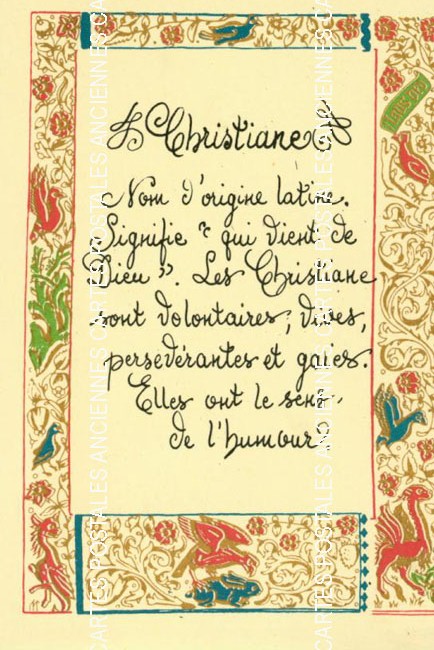 Christiane
Nom d'origine latine.
Signifie " qui vient de
Dieu ". Les Christiane
sont volontaires, vives,
persévérantes et gaies.
Elles ont le sens
de l'humour
CARTES POSTALES ANCIENNES CARTES POSTALES ANCIENNES
CARTES POSTALES ANCIENNES CARTES POSTALES ANCIENNES